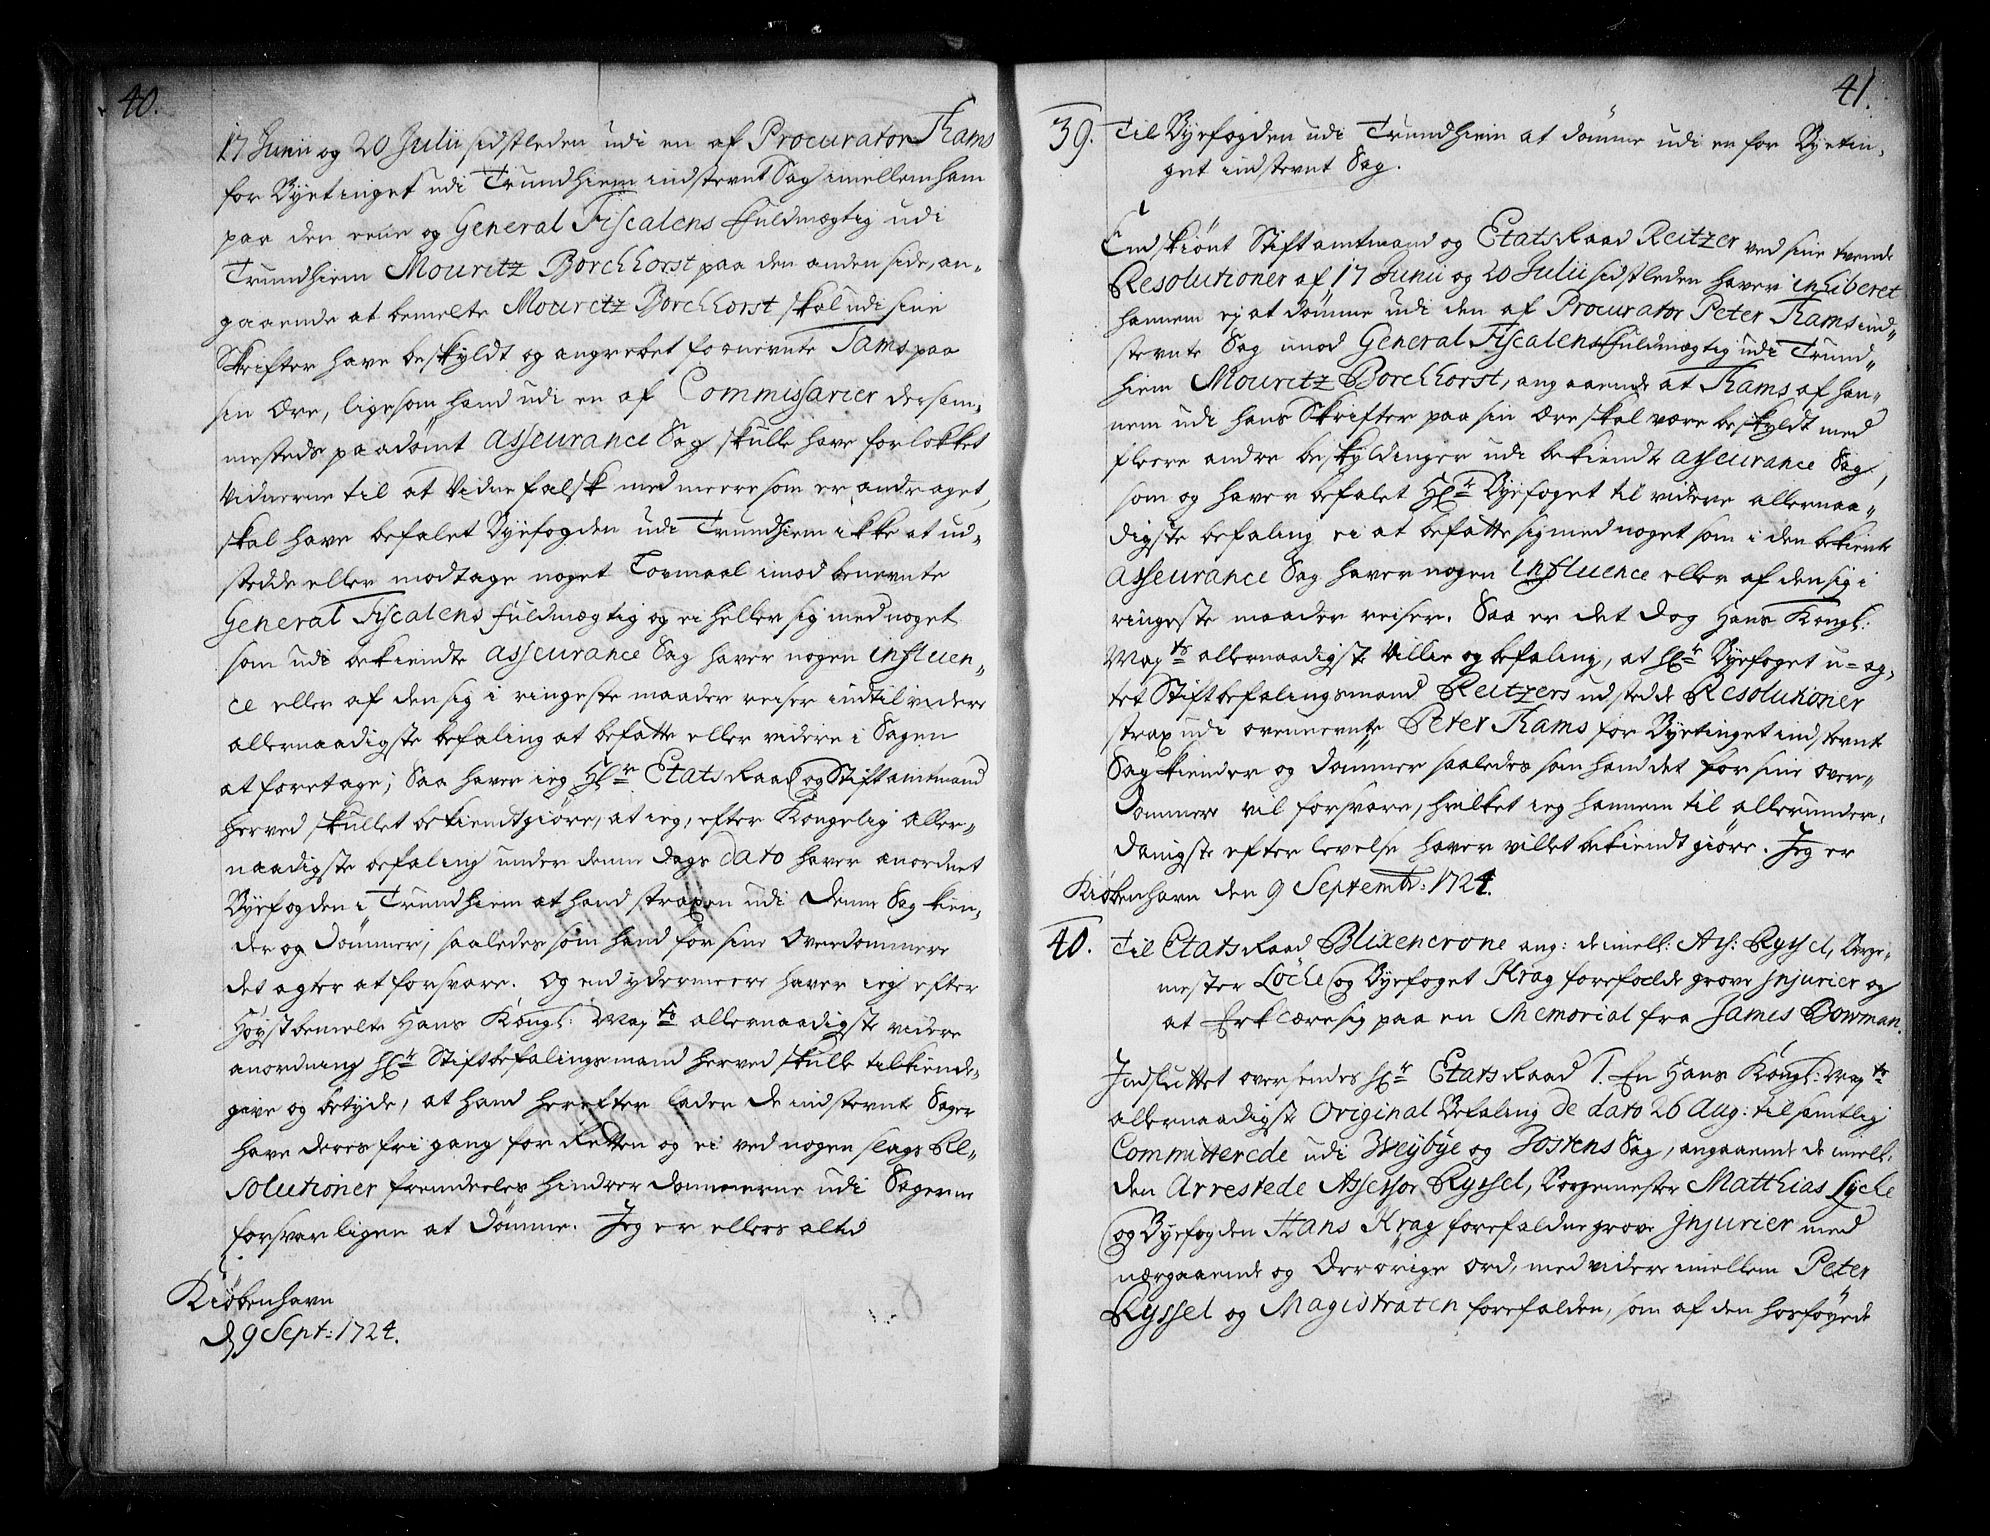 40.
17 Junii og 20 Julii sidstleden udi en af Procurator Thams
for Byetinget udi Trundhiem indstevnt Sag imellem ham
paa den eene og General Fiscalens Fuldmægtig udi
Trundhiem Mouritz Borchhorst paa den anden side, an„
gaaende at bemelte Mouritz Borchhorst skal udi sine
Skrifter have beskyldt og angrebet fornevnte Tams paa
sin Ære, ligesom hand udi en af Commissarier dersam„
mesteds paadømt asseurance Sag skulle have forlokket
Vidnerne til at Vidne falsk med meere som er andraget,
skal have befalet Byefogden udi Trundhiem ikke at ud„
stedde eller modtage noget Tovmaal imod benevnte
General Fiscalens fuldmægtig og ei heller sig med noget
som udi bekiendte asseurance Sag haver nogen influen„
ce eller af den sig i ringeste maader reiser indtil videre
allernaadigste befaling at befatte eller videre i Sagen
at foretage; Saa haver ieg Hr Etats Raad og Stiftamtmand
herved skullet bekiendtgiøre, at ieg, efter Kongelig aller„
naadigste befaling under denne dags dato haver anordnet
Byefogden i Trundhiem at hand strax udi denne Sag kien„
der og dømmer, saaledes som hand for sine Overdommere
det agter at forsvare. Og end ydermeere haver ieg efter
Høystbemelte Hans Kongl: Mayts allernaadigste videre
anordning Hr Stiftbefalingsmand herved skulle tilkiende„
give og betyde, at hand herefter lader de indstevnte Sager
have deres fri gang for Retten og ei ved nogen slags Re„
solutioner fremdeeles hindrer dommerne udi Sagerne
forsvarligen at dømme. Jeg er ellers altid
Kiøbenhavn
d 9 Sept: 1724.
41.
39. Til Byefogden udi Trundhiem at dømme udi en for Byetin„
get indstevnt Sag.
Endskiønt Stiftamtmand og Etats Raad Reitzer ved sine tvende
Resolutioner af 17 Junii og 20 Julii sidstleden haver inhiberet
hannem ej at dømme udi den af Procurator Peter Thams ind„
stevnte Sag imod General Fiscalens Fuldmægtig udi Trund„
hiem Mouritz Borchhorst, angaaende at Thams af han„
nem udi hans Skrifter paa sin Ære skal være beskyldt med
fleere andre beskyldinger udi bekiendte asseurance Sag,
som og haver befalet Hr Byefoget til videre allernaa„
digste befaling ei at befatte sig med noget som i den bekiente
asseurance Sag haver nogen influence eller af den sig i
ringeste maader reiser. Saa er det dog Hans Kongl:
Mayts allernaadigste Villie og befaling, at Hr Byefoget u-ag„
tet Stiftbefalingsmand Reitzers udstedde Resolutioner
strax udi ovennevnte Peter Thams for Byetinget indstevnte
Sag kiender og dømmer saaledes som hand det for sine over„
dommere vil forsvare, hvilket ieg hannem til allerunder„
danigste efterlevelse haver villet bekiendtgiøre. Jeg er
Kiøbenhavn den 9 Septembr: 1724.
40. Til Etats Raad Blixencrone ang: de imell: Ass: Ryssel, Borge„
mester Löche og Byefoget Krag forefaldne grove Injurier og
at Erklære sig paa en Memorial fra James Bowman.
Indsluttet oversendes Hr Etats Raad 1. En Hans Kongl: Mayts
allernaadigste Original Befaling de dato 26 Aug: til samtlig
Committerede udi Weybye og Jostens Sag, angaaende de imell:
den Arrestede Assessor Ryssel, Borgemester Matthias Lyche
og Byefogden Hans Krag forefaldne grove Injurier med
nærgaaende og Ærrørige Ord, med videre imellem Peter
Ryssel og Magistraten forefalden, som af den hosføyede